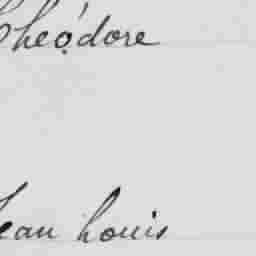 Théodore
Jean Louis